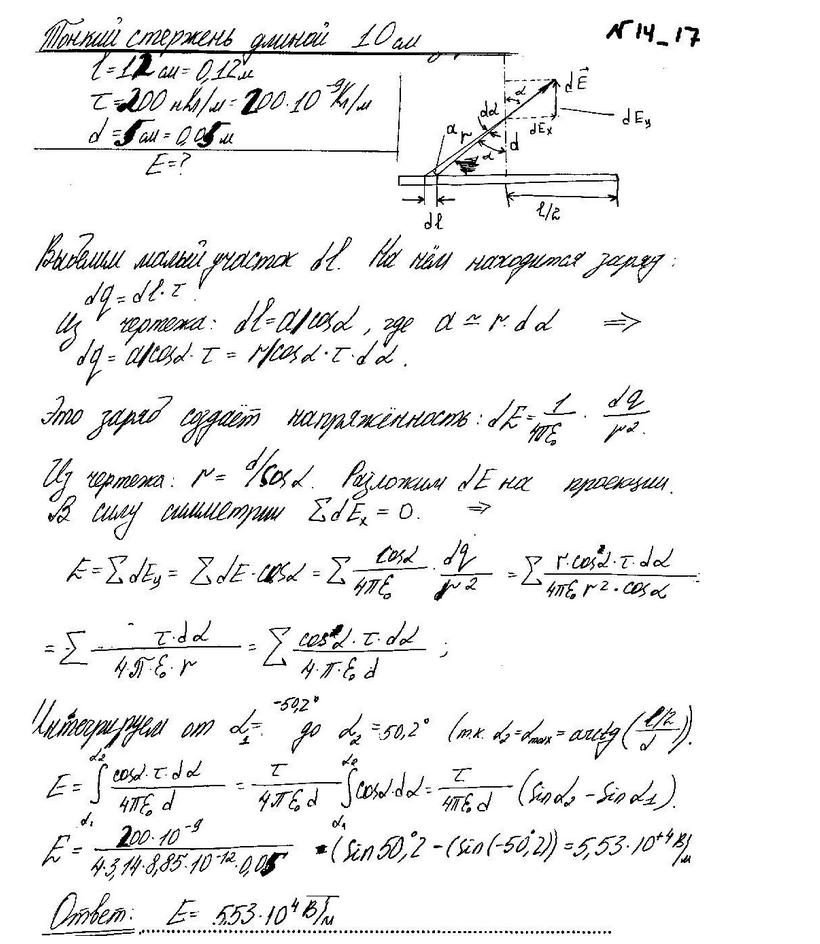 №14_17
Тонкий стержень длиной 10 см
l = 12 см = 0,12 м
τ = 200 нКл/м = 200·10⁻⁹ Кл/м
d = 5 см = 0,05 м
E = ?
dE⃗
α
dα
dEy
dEx
a
r
d
α
l/2
dl
Выделим малый участок dl. На нём находится заряд:
dq = dl·τ.
Из чертежа: dl = a/cosα, где a ≃ r·dα ⇒
dq = a/cosα·τ = r/cosα·τ·dα.
Это заряд создаёт напряжённость: dE = 1/4πε₀ · dq/r².
Из чертежа: r = d/cosα. Разложим dE на проекции.
В силу симметрии ΣdEx = 0. ⇒
E = ΣdEy = ΣdE·cosα = Σ cosα/4πε₀ · dq/r² = Σ r·cosα·τ·dα/4πε₀r²·cosα
= Σ τ·dα/4·π·ε₀·r = Σ cosα·τ·dα/4·π·ε₀d ;
Интегрируем от α₁ = -50,2° до α₂ = 50,2° (т.к. α₂ = αmax = arctg(l/2/d)).
E = ∫α₁α₂ cosα·τ·dα/4πε₀d = τ/4πε₀d ∫α₁α₂ cosα·dα = τ/4πε₀d (sinα₂ - sinα1).
E = 200·10⁻⁹/4·3,14·8,85·10⁻¹²·0,05 ·(sin50,°2 - (sin(-50,°2)) = 5,53·10⁺⁴ В/м
Ответ: E = 5,53·10⁴ В/м